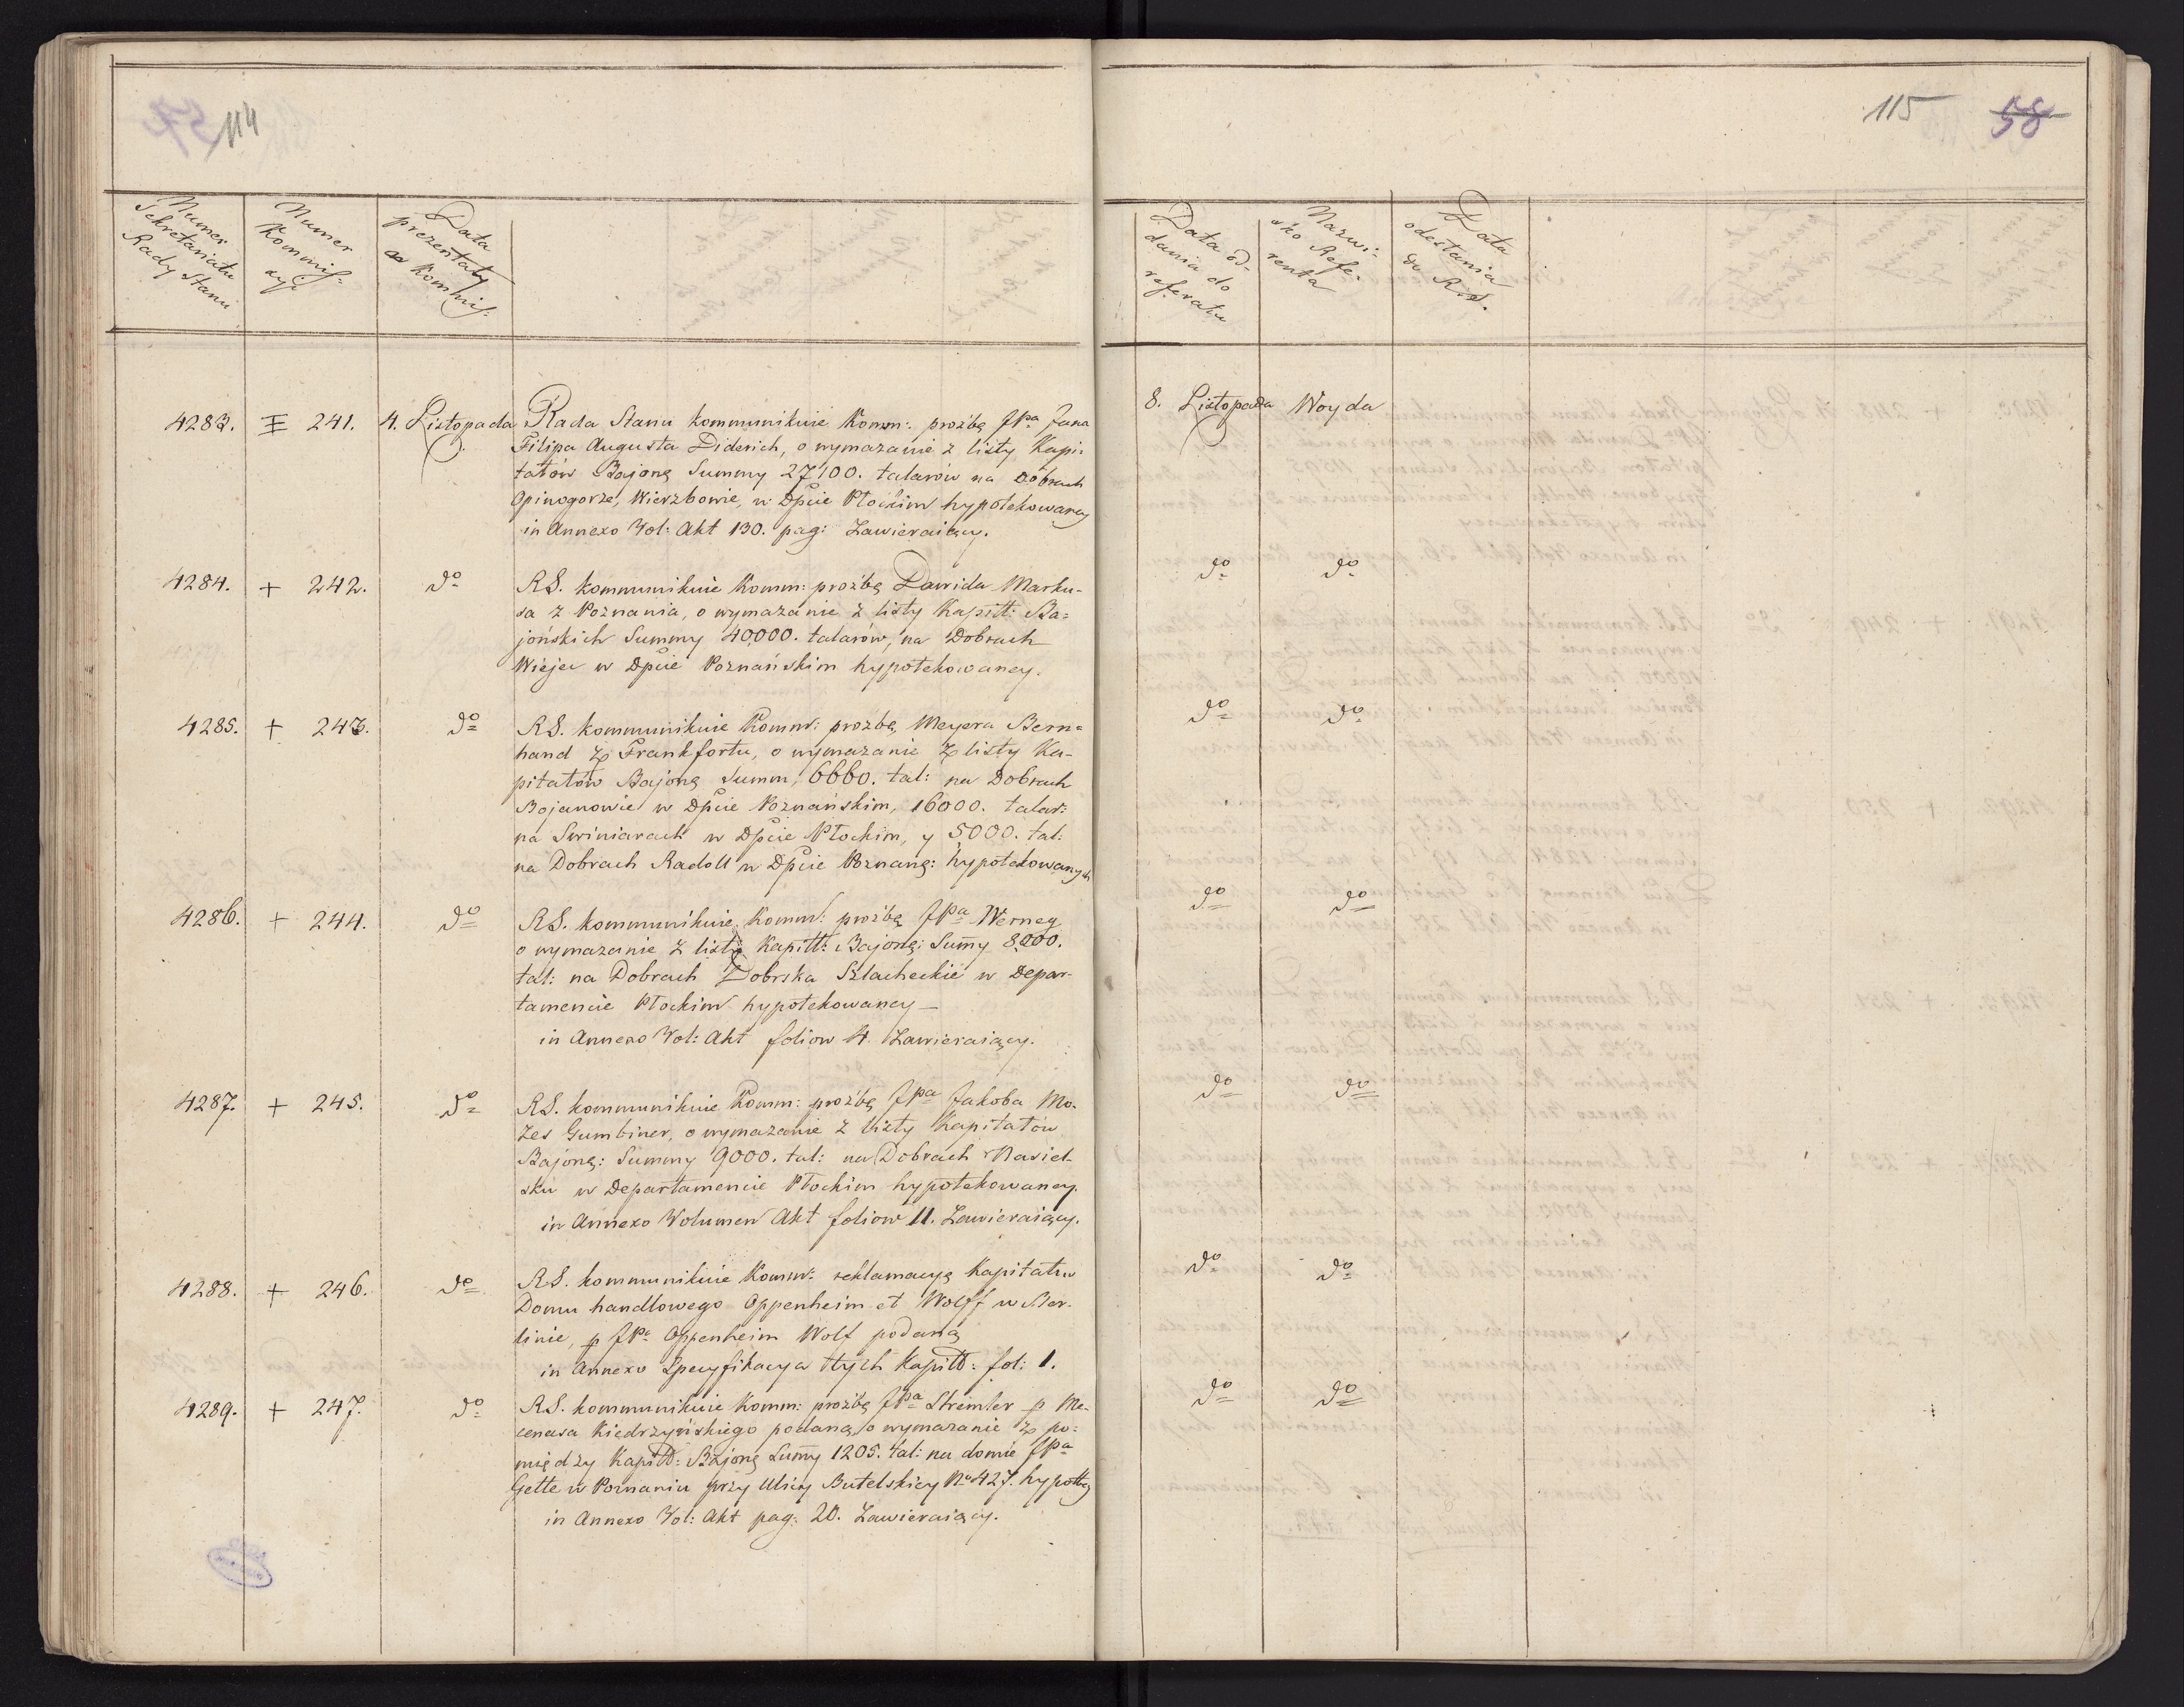 114
Numer Sekretariatu Rady Stanu
Numer Kommissyi
Data prezentaty w Kommiss:
4283. I 241. 4. Listopada Rada Stanu kommunikuie Komm: prożbę JPa Jana
Filipa Augusta Diderich, o wymazanie z listy Kapi:
tałów Bajonę Summy 27100. talarów na Dobrach
Opinogorze, Wierzbowie, w Dpcie Płockim hypotekowaney
in Annexo Vol: Akt 130. pag: Zawieraiący.
4284. + 242. do RS. kommunikuie Komm: prożbę Dawida Marku-
sa z Poznania, o wymazanie z listy Kapitt: Ba=
jońskich Summy 40000. talarów, na Dobrach
Wiejce w Dpcie Poznańskim hypotekowaney.
4285. + 243. do RS. kommunikuie Komm: prożbę Meyera Bern=
hand z Frankfortu, o wymazanie z listy Ka-
pitałów Bajonę Summ, 6660. tal: na Dobrach
Bojanowie w Dpcie Poznańskim, 16000. talar:
na Swiniarach w Dpcie Płockim, y 5000. tal:
na Dobrach Radoll w Dpcie Poznanę: hypotekowanych
4286. + 244. do RS. kommunikuie Komm: prożbę JPa Werneg
o wymazanie z listy Kapitt: Bajonę: Summy 8000.
tal: na Dobrach Dobrska Szlacheckie w Depar-
tamencie Płockim hypotekowaney —
in Annexo Vol: Akt foliow 4. Zawieraiący.
4287. + 245. do RS. kommunikuie Komm: prożbę JPa Jakoba Mo-
zes Gumbiner, o wymazanie z listy Kapitałów
Bajonę: Summy 9000. tal: na Dobrach Nasiel-
sku w Departamencie Płockim hypotekowaney.
in Annexo Volumen Akt foliow 11. Zawieraiący.
4288. + 246. do RS. kommunikuie Komm: reklamacyą Kapitału
Domu handlowego Oppenheim et Wolff w Ber-
linie, p JPa Oppenheim Wolf podaną
in Annexo Specyfikacya tych Kapitt: fol: 1.
4289. + 247. do RS. kommunikuie Komm: prożbę JPa Stremler p Me-
cenasa Kiedrzyńskiego podaną o wymazanie z po=
między Kapitt: Bajonę Summy 1205. tal: na domie JPa
Gette w Poznaniu przy Ulicy Butelskiey No 427. hypottey
in Annexo Vol: Akt pag: 20. Zawieraiący.
115 58
Data od-
dania do
referatu
Nazwi-
sko Refe-
renta
Data
odesłania
do R.S.
8. Listopada Woyda
do do
do do
do do
do do
do do
do do